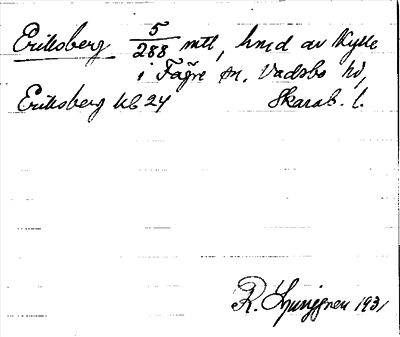 Eriksberg 5/288 mtl, hmd av Kylle
i Fägre sn, Vadsbo hd,
Eriksberg kb 24 Skarab. l.
R. Ljunggren 1931